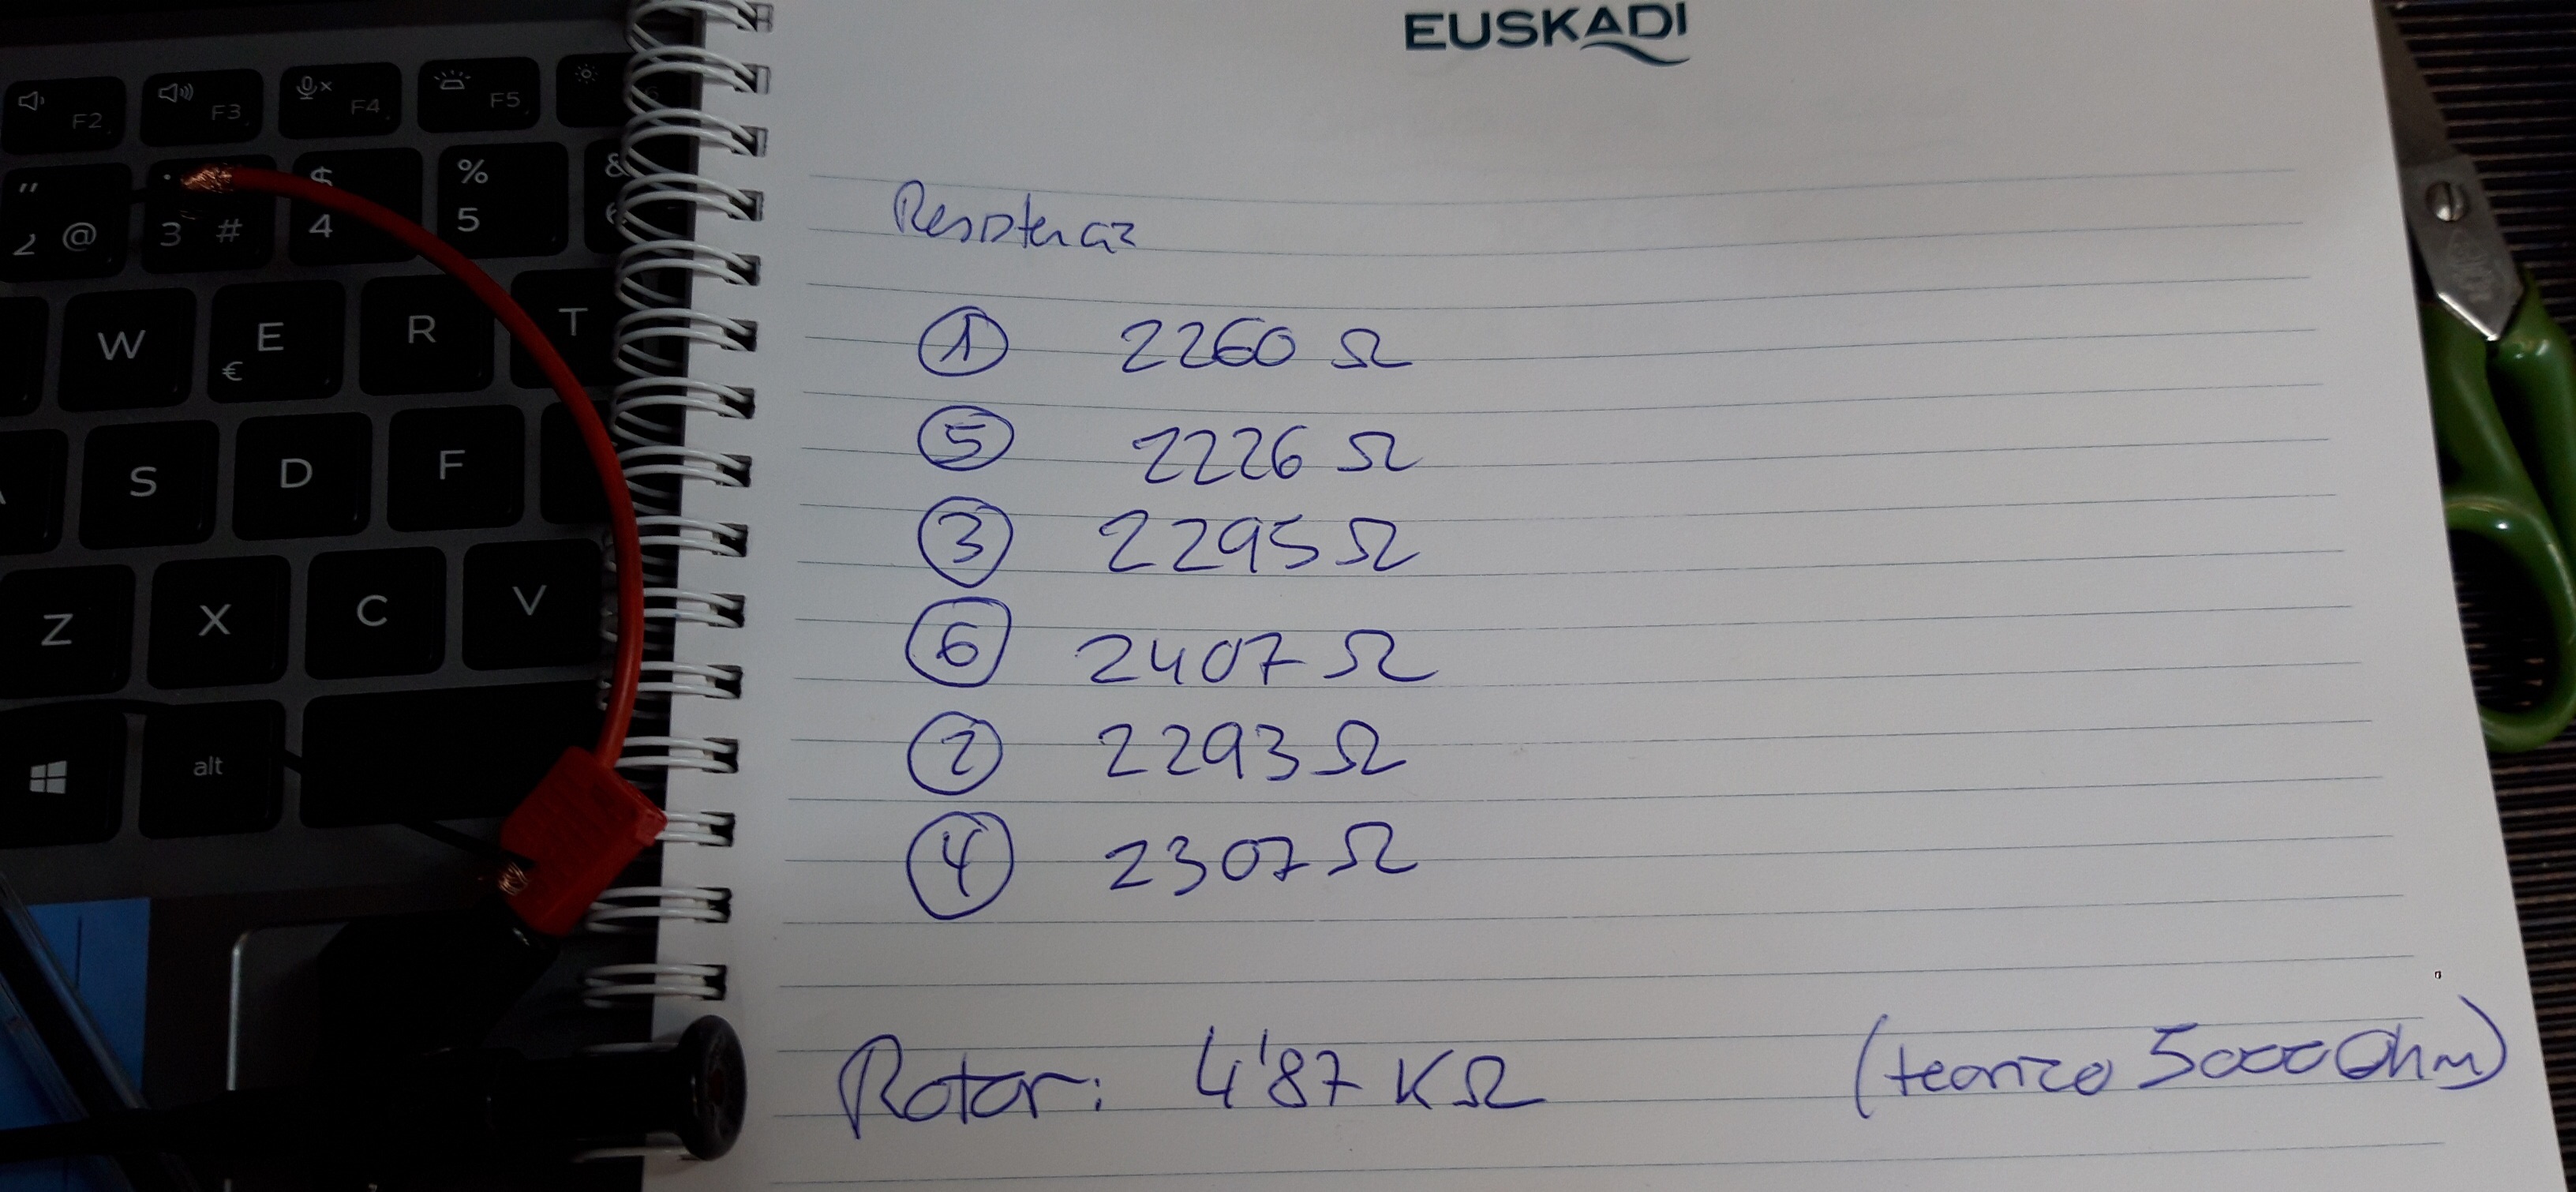 EUSKADI
Resistenciaz
① 2260 Ω
⑤ 2226 Ω
③ 2295 Ω
⑥ 2407 Ω
② 2293 Ω
④ 2307 Ω
Rotor: 4'87 KΩ (teorico 5000 Ohm)
F2 F3 F4 F5
" 2 @ · 3 # $ 4 % 5 & 6
W E € R T
S D F
Z X C V
alt